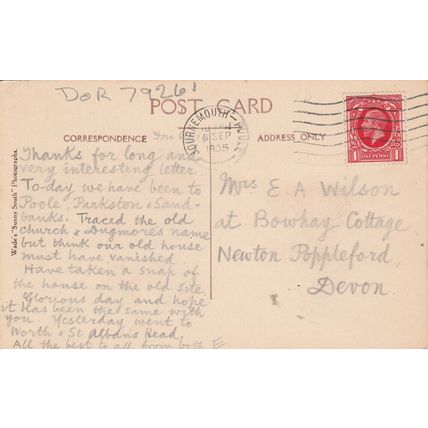 DOR 79261
POST CARD
CORRESPONDENCE
ADDRESS ONLY
BOURNEMOUTH - POOLE
6 SEP
1935
ONE PENNY
1
1
Wade's "Sunny South" Photographs.
Thanks for long and
very interesting letter
To-day we have been to
Poole Parkston & Sand-
banks. Traced the old
church & Dugmore's name
but think our old house
must have vanished
Have taken a snap of
the house on the old site
Glorious day and hope
it has been the same with
you. Yesterday went to
Worth & St Albans Head.
All the best to all from both E
Mrs E A Wilson
at Bowhay Cottage
Newton Poppleford,
Devon.